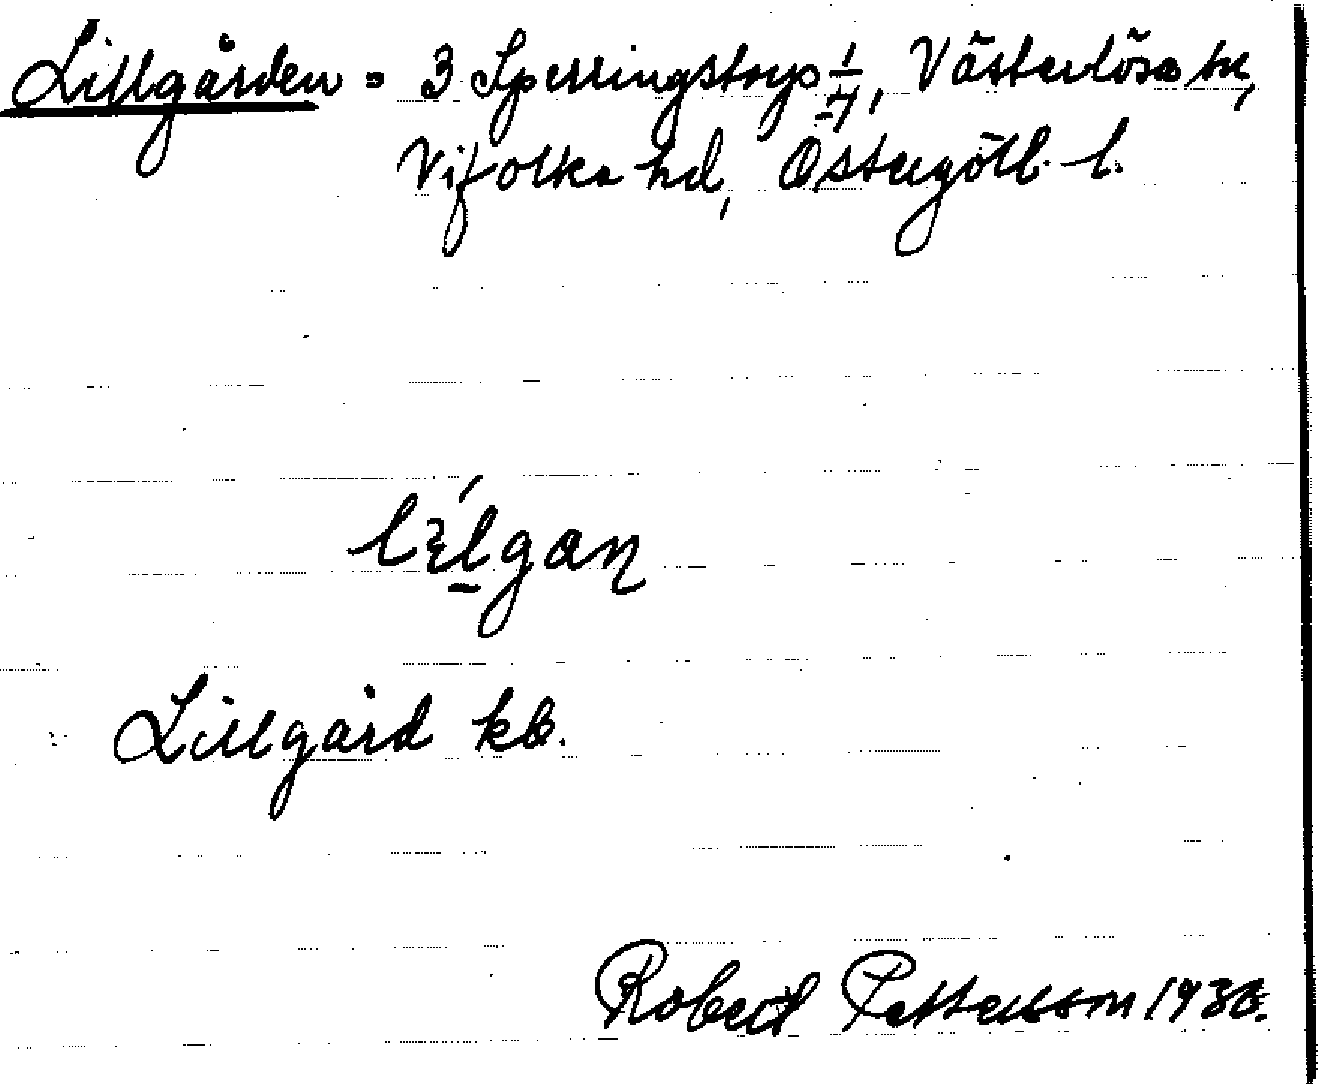 Lillgården = 3 Sperringstorp 1/4, Västerlösa sn,
Vifolka hd, Östergötl. l.
Lillgård kb.
Robert Pettersson 1936.